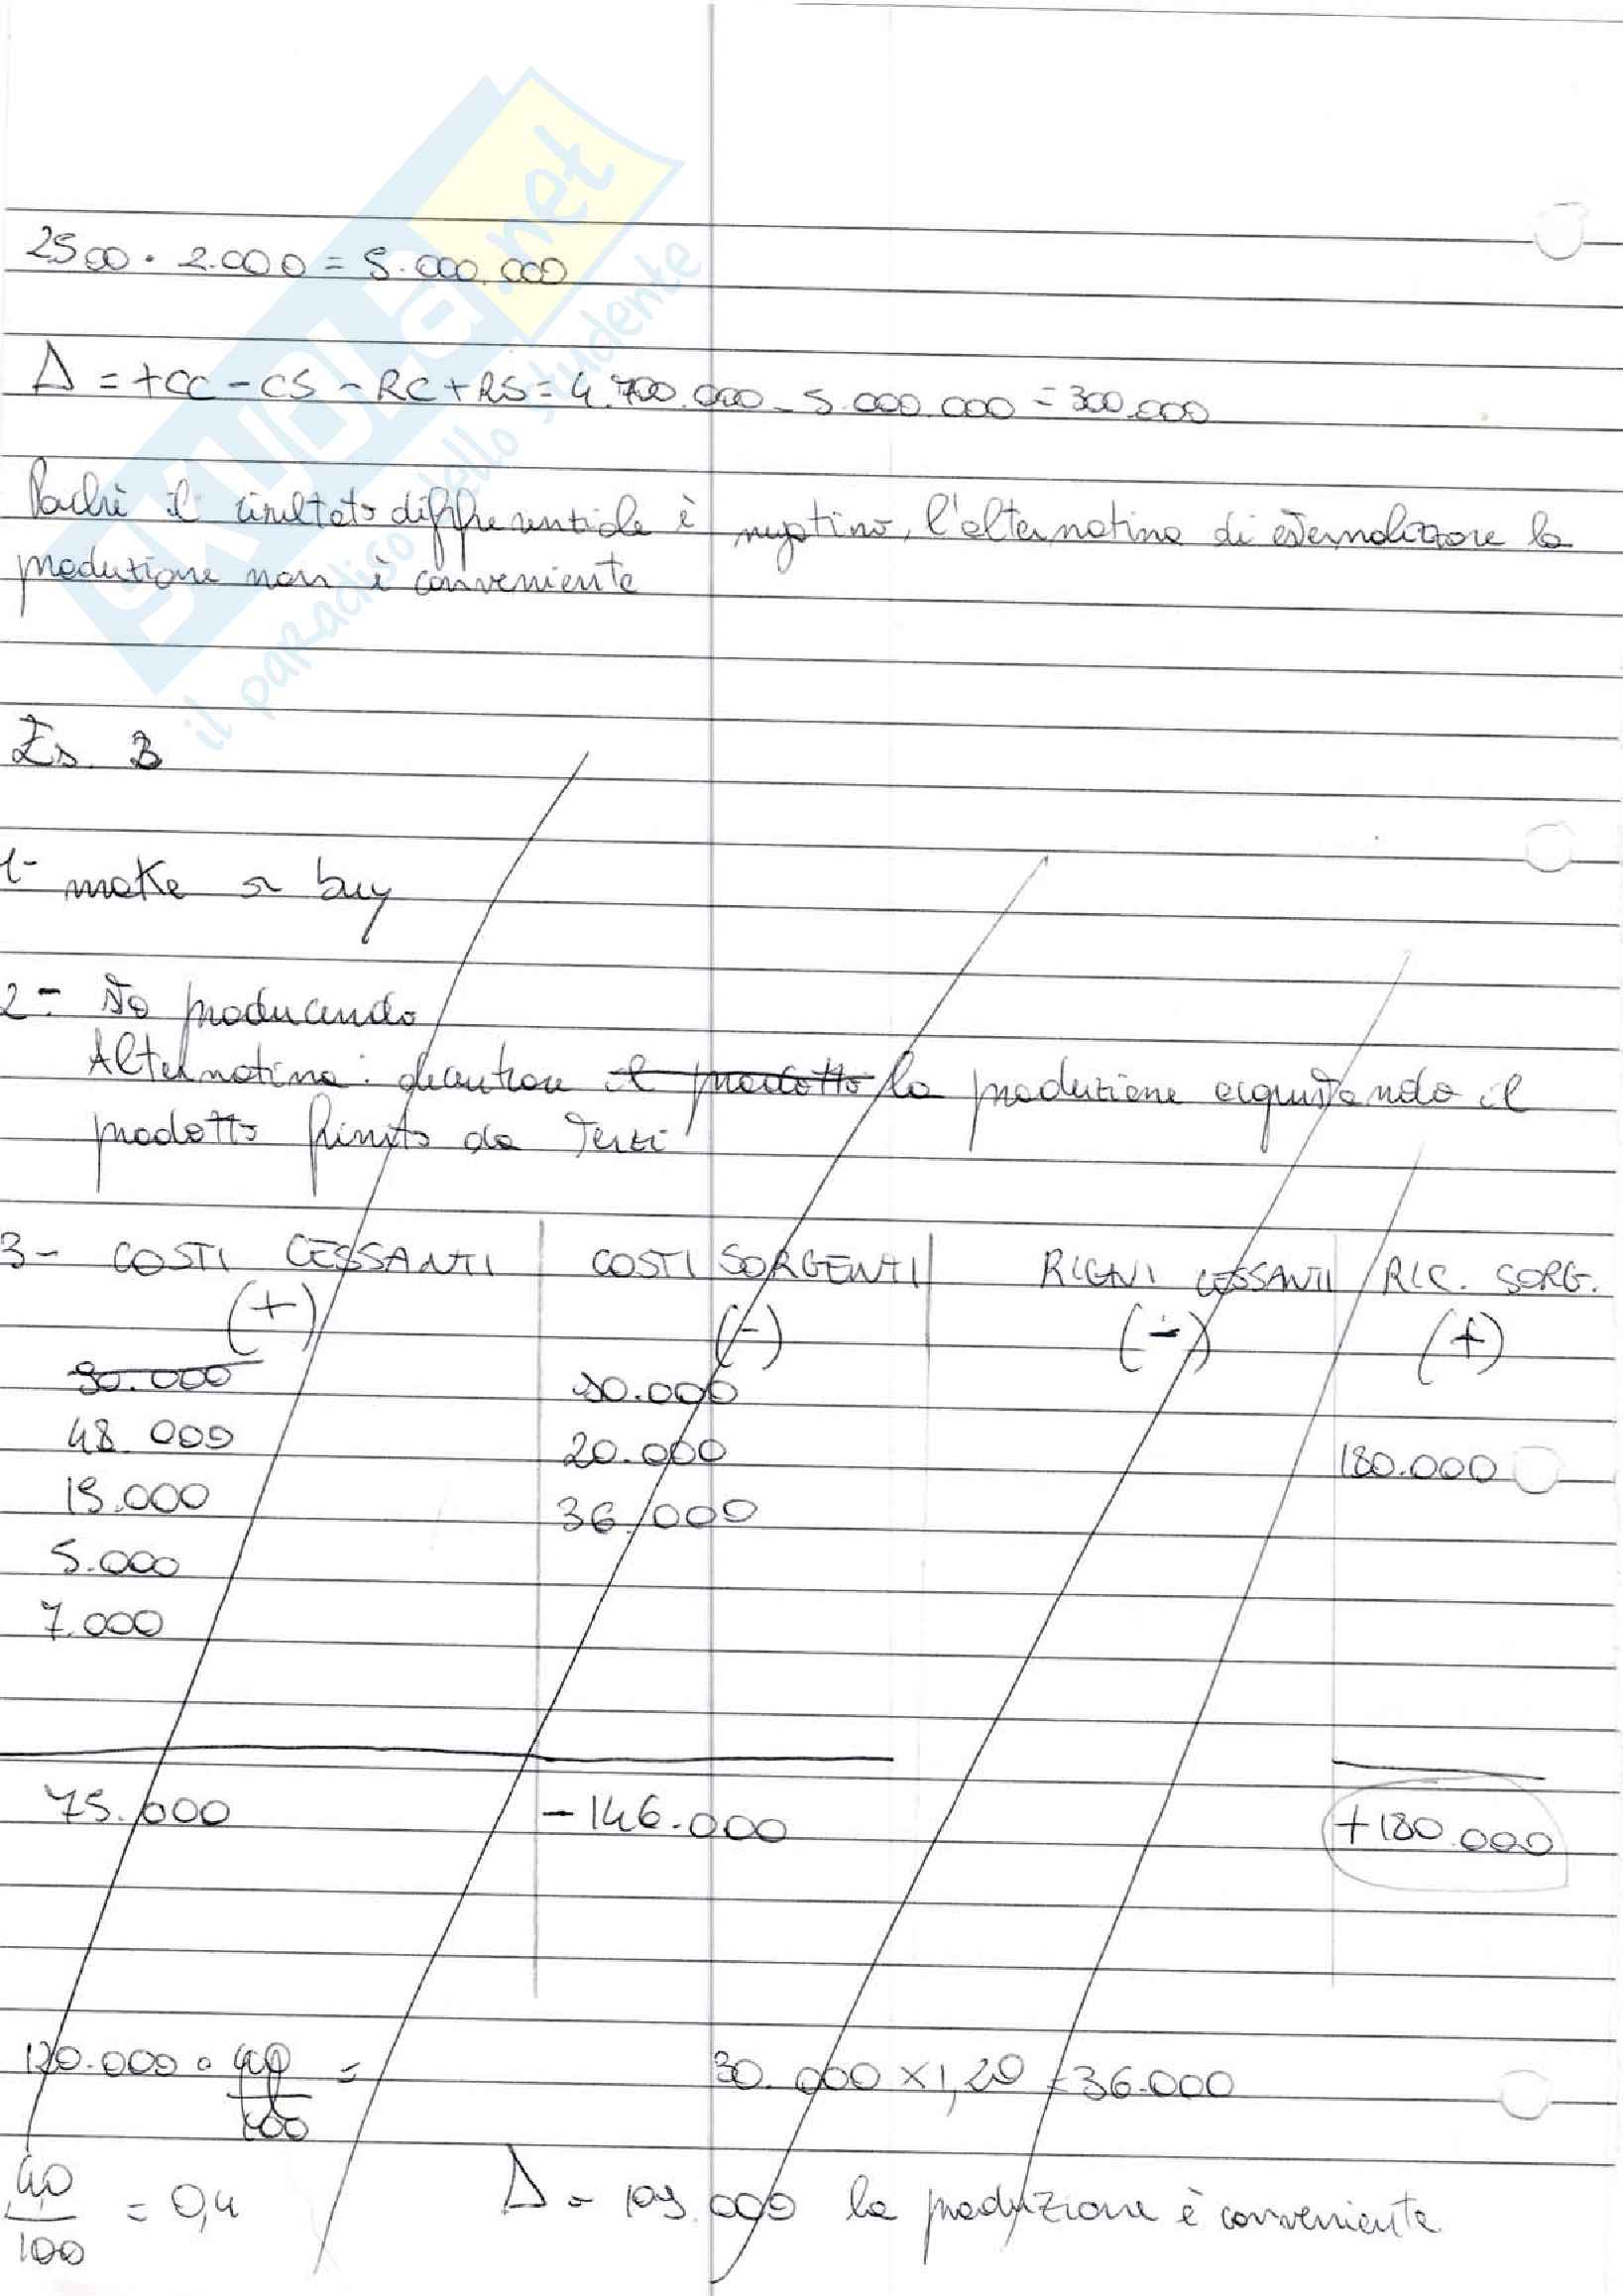 SKUOLA.net
il paradiso dello studente
2500 · 2.000 = 5.000.000
Δ = +CC - CS - RC + RS = 4.700.000 - 5.000.000 = 300.000
Poichè il risultato differenziale è negativo, l'alternativa di esternalizzare la
produzione non è conveniente
Es. 3
1- make or buy
2- Sto producendo
Alternativa: decentrare il prodotto la produzione acquistando il
prodotto finito da terzi
3- COSTI CESSANTI COSTI SORGENTI RICAVI CESSANTI RIC. SORG.
(+) (-) (-) (+)
90.000 90.000
48.000 20.000 180.000
15.000 36.000
5.000
7.000
75.000 -146.000 +180.000
120.000 · 40/100 = 30.000 x 1,20 = 36.000
40/100 = 0,4 Δ = 109.000 la produzione è conveniente